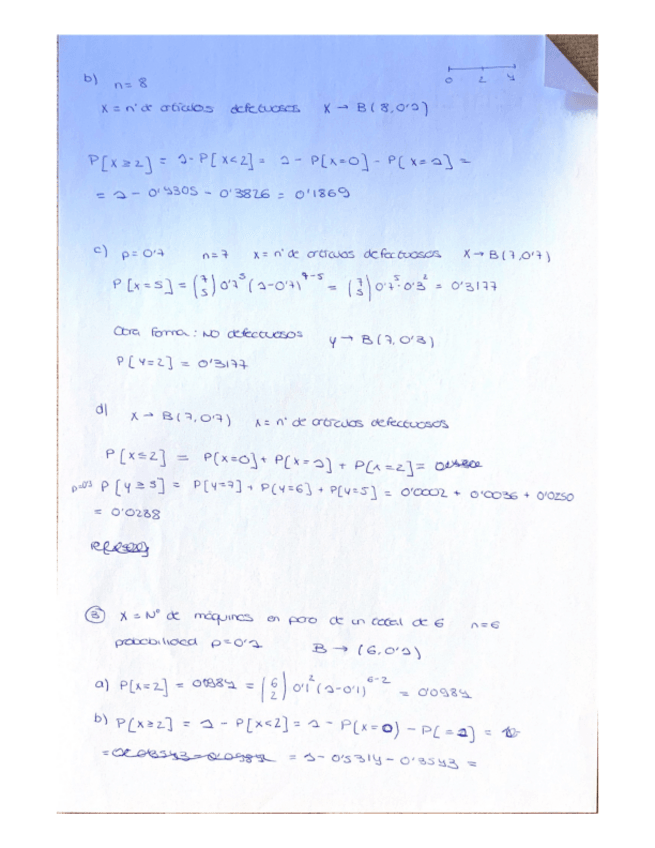 b) n = 8
0 2 4
X = nº de artículos defectuosos X → B(8, 0'1)
P[X ≥ 2] = 1 - P[X < 2] = 1 - P[X=0] - P[X=1] =
= 1 - 0'4305 - 0'3826 = 0'1869
c) p = 0'7 n = 7 X = nº de artículos defectuosos X → B(7, 0'7)
P[X = 5] = (7 5) 0'7^5 (1-0'7)^7-5 = (7 5) 0'7^5 · 0'3^2 = 0'3177
Otra forma: NO defectuosos Y → B(7, 0'3)
P[Y=2] = 0'3177
d) X → B(7, 0'7) X = nº de artículos defectuosos
P[X ≤ 2] = P[X=0] + P[X=1] + P[X=2] =
p=0'3 P[Y ≥ 5] = P[Y=7] + P[Y=6] + P[Y=5] = 0'0002 + 0'0036 + 0'0250
= 0'0288
③ X = Nº de máquinas en paro de un total de 6 n = 6
probabilidad p = 0'1 B → (6, 0'1)
a) P[X=2] = 0'0984 = (6 2) 0'1^2 (1-0'1)^6-2 = 0'0984
b) P[X ≥ 2] = 1 - P[X < 2] = 1 - P(X=0) - P[=1] =
= 1 - 0'5314 - 0'3543 =